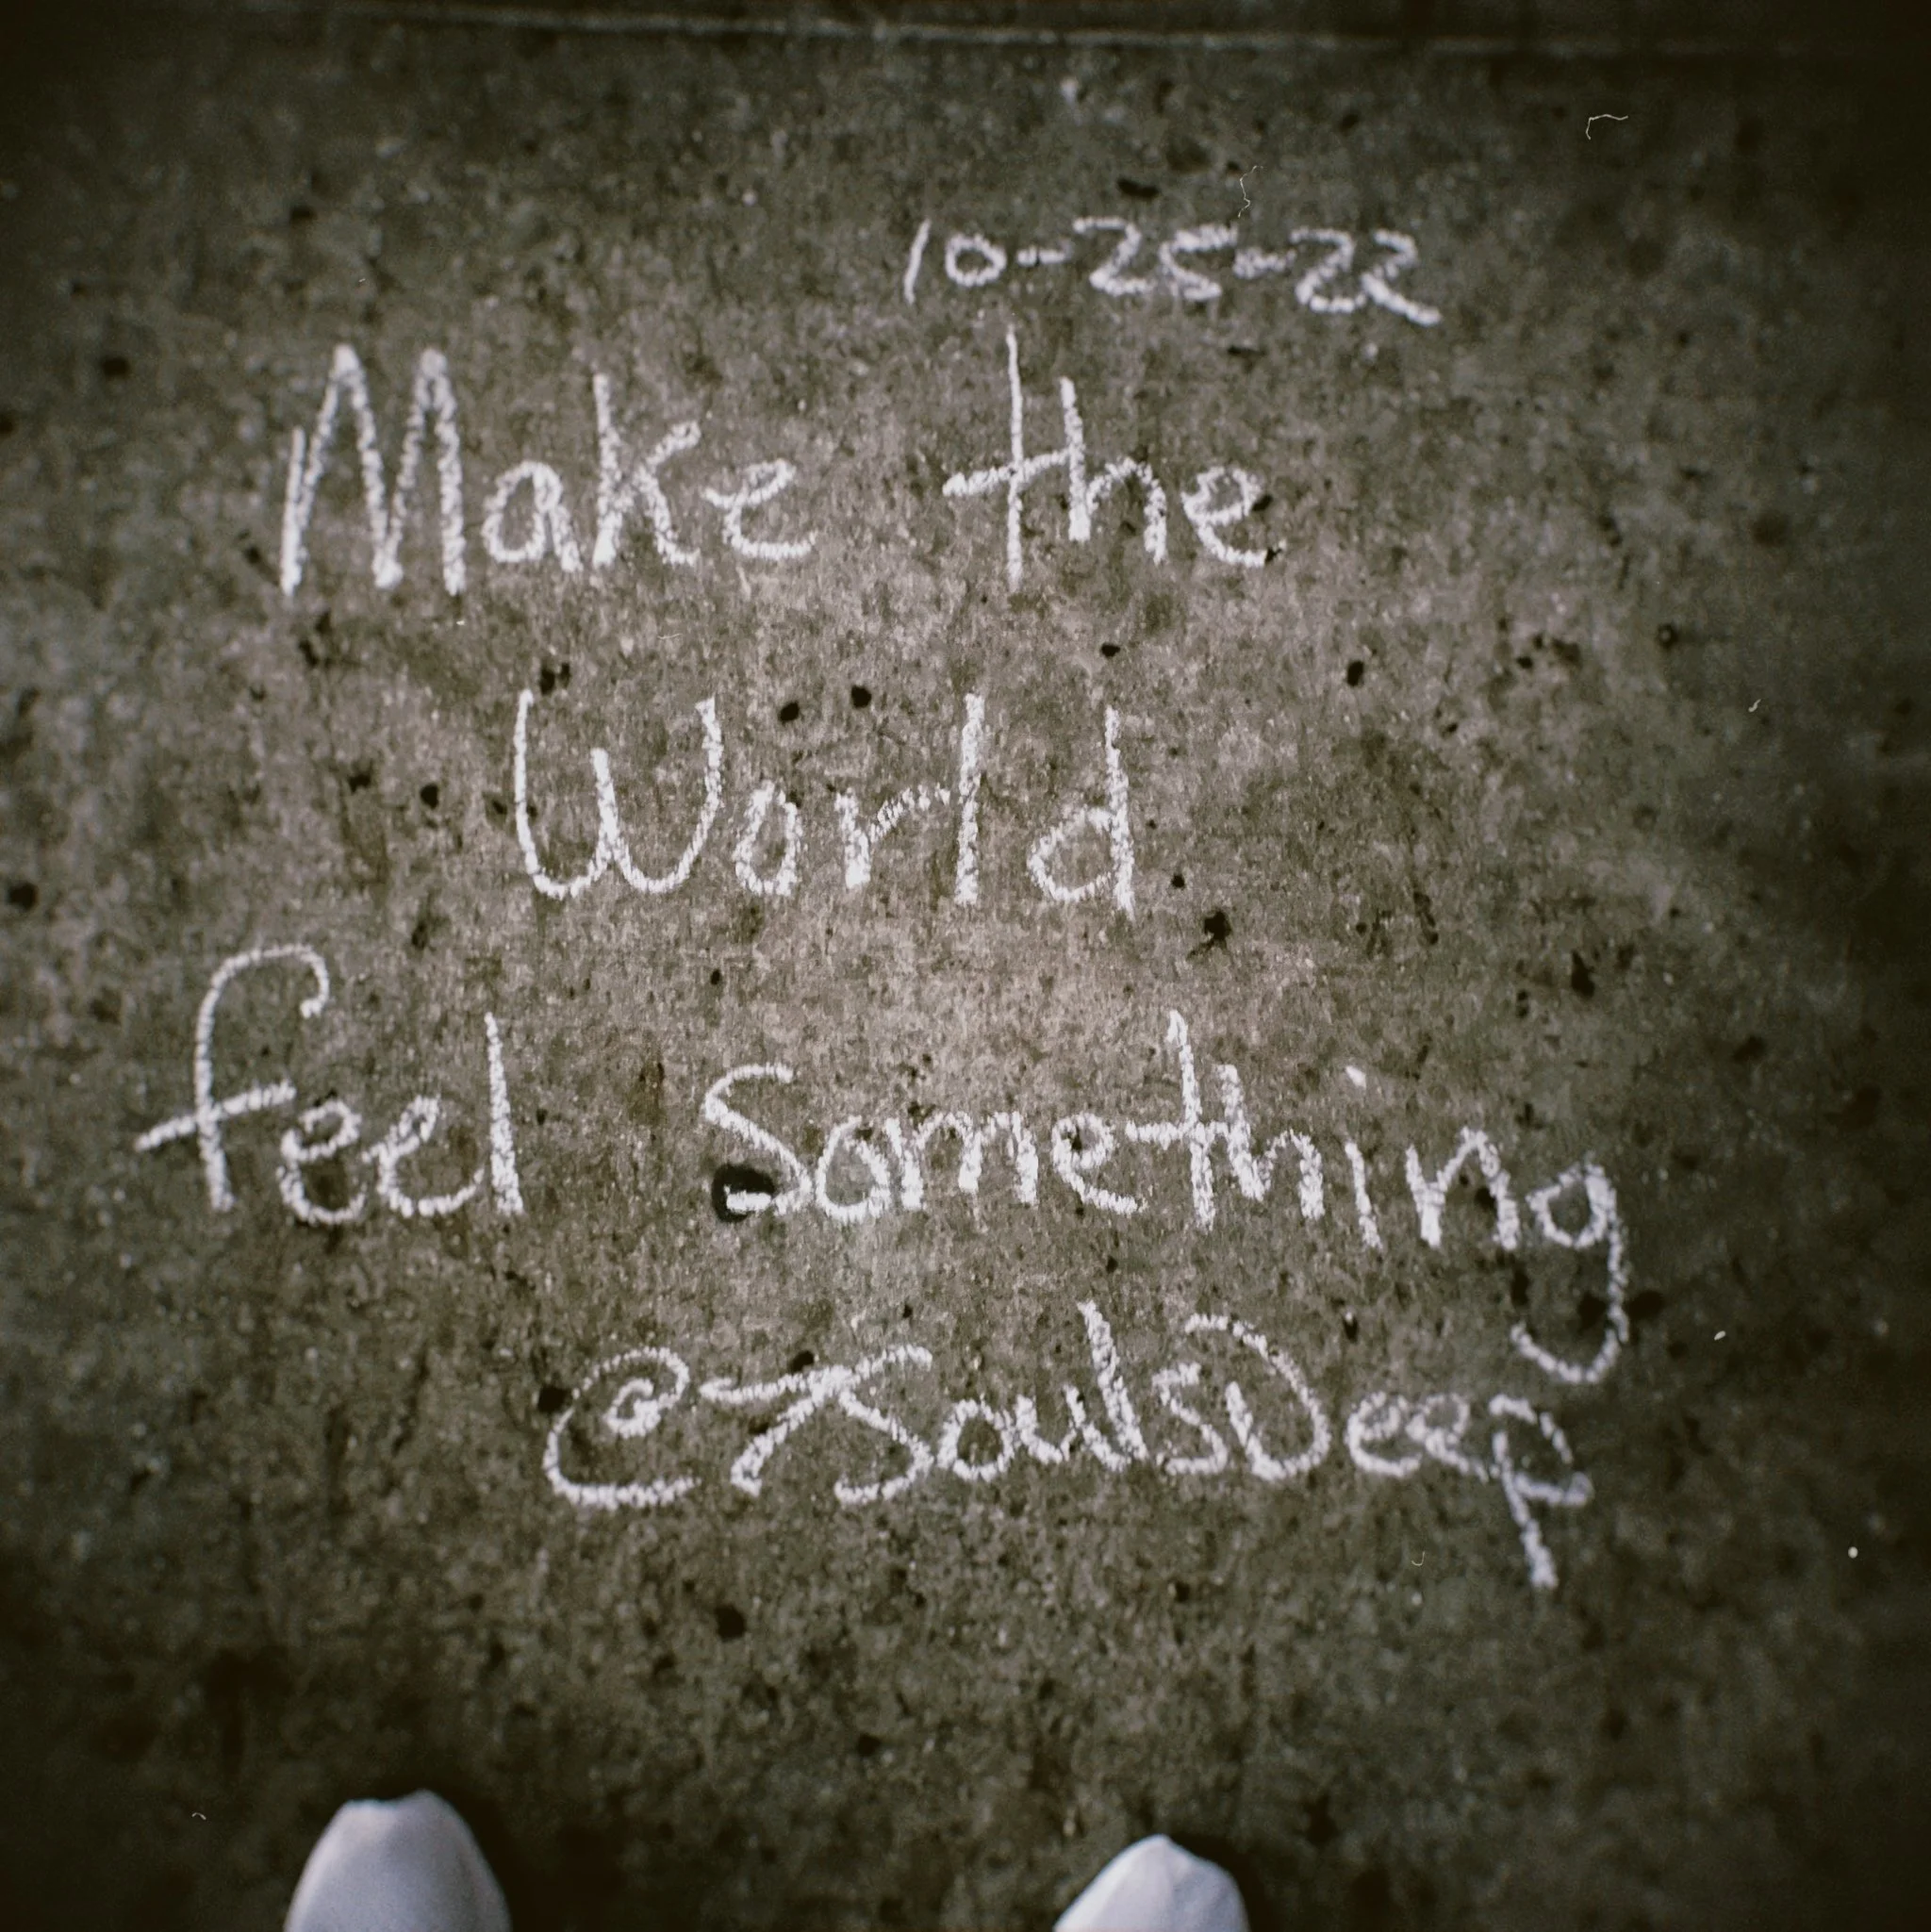 10-25-22
Make the
World
feel Something
@JSoulsDeep